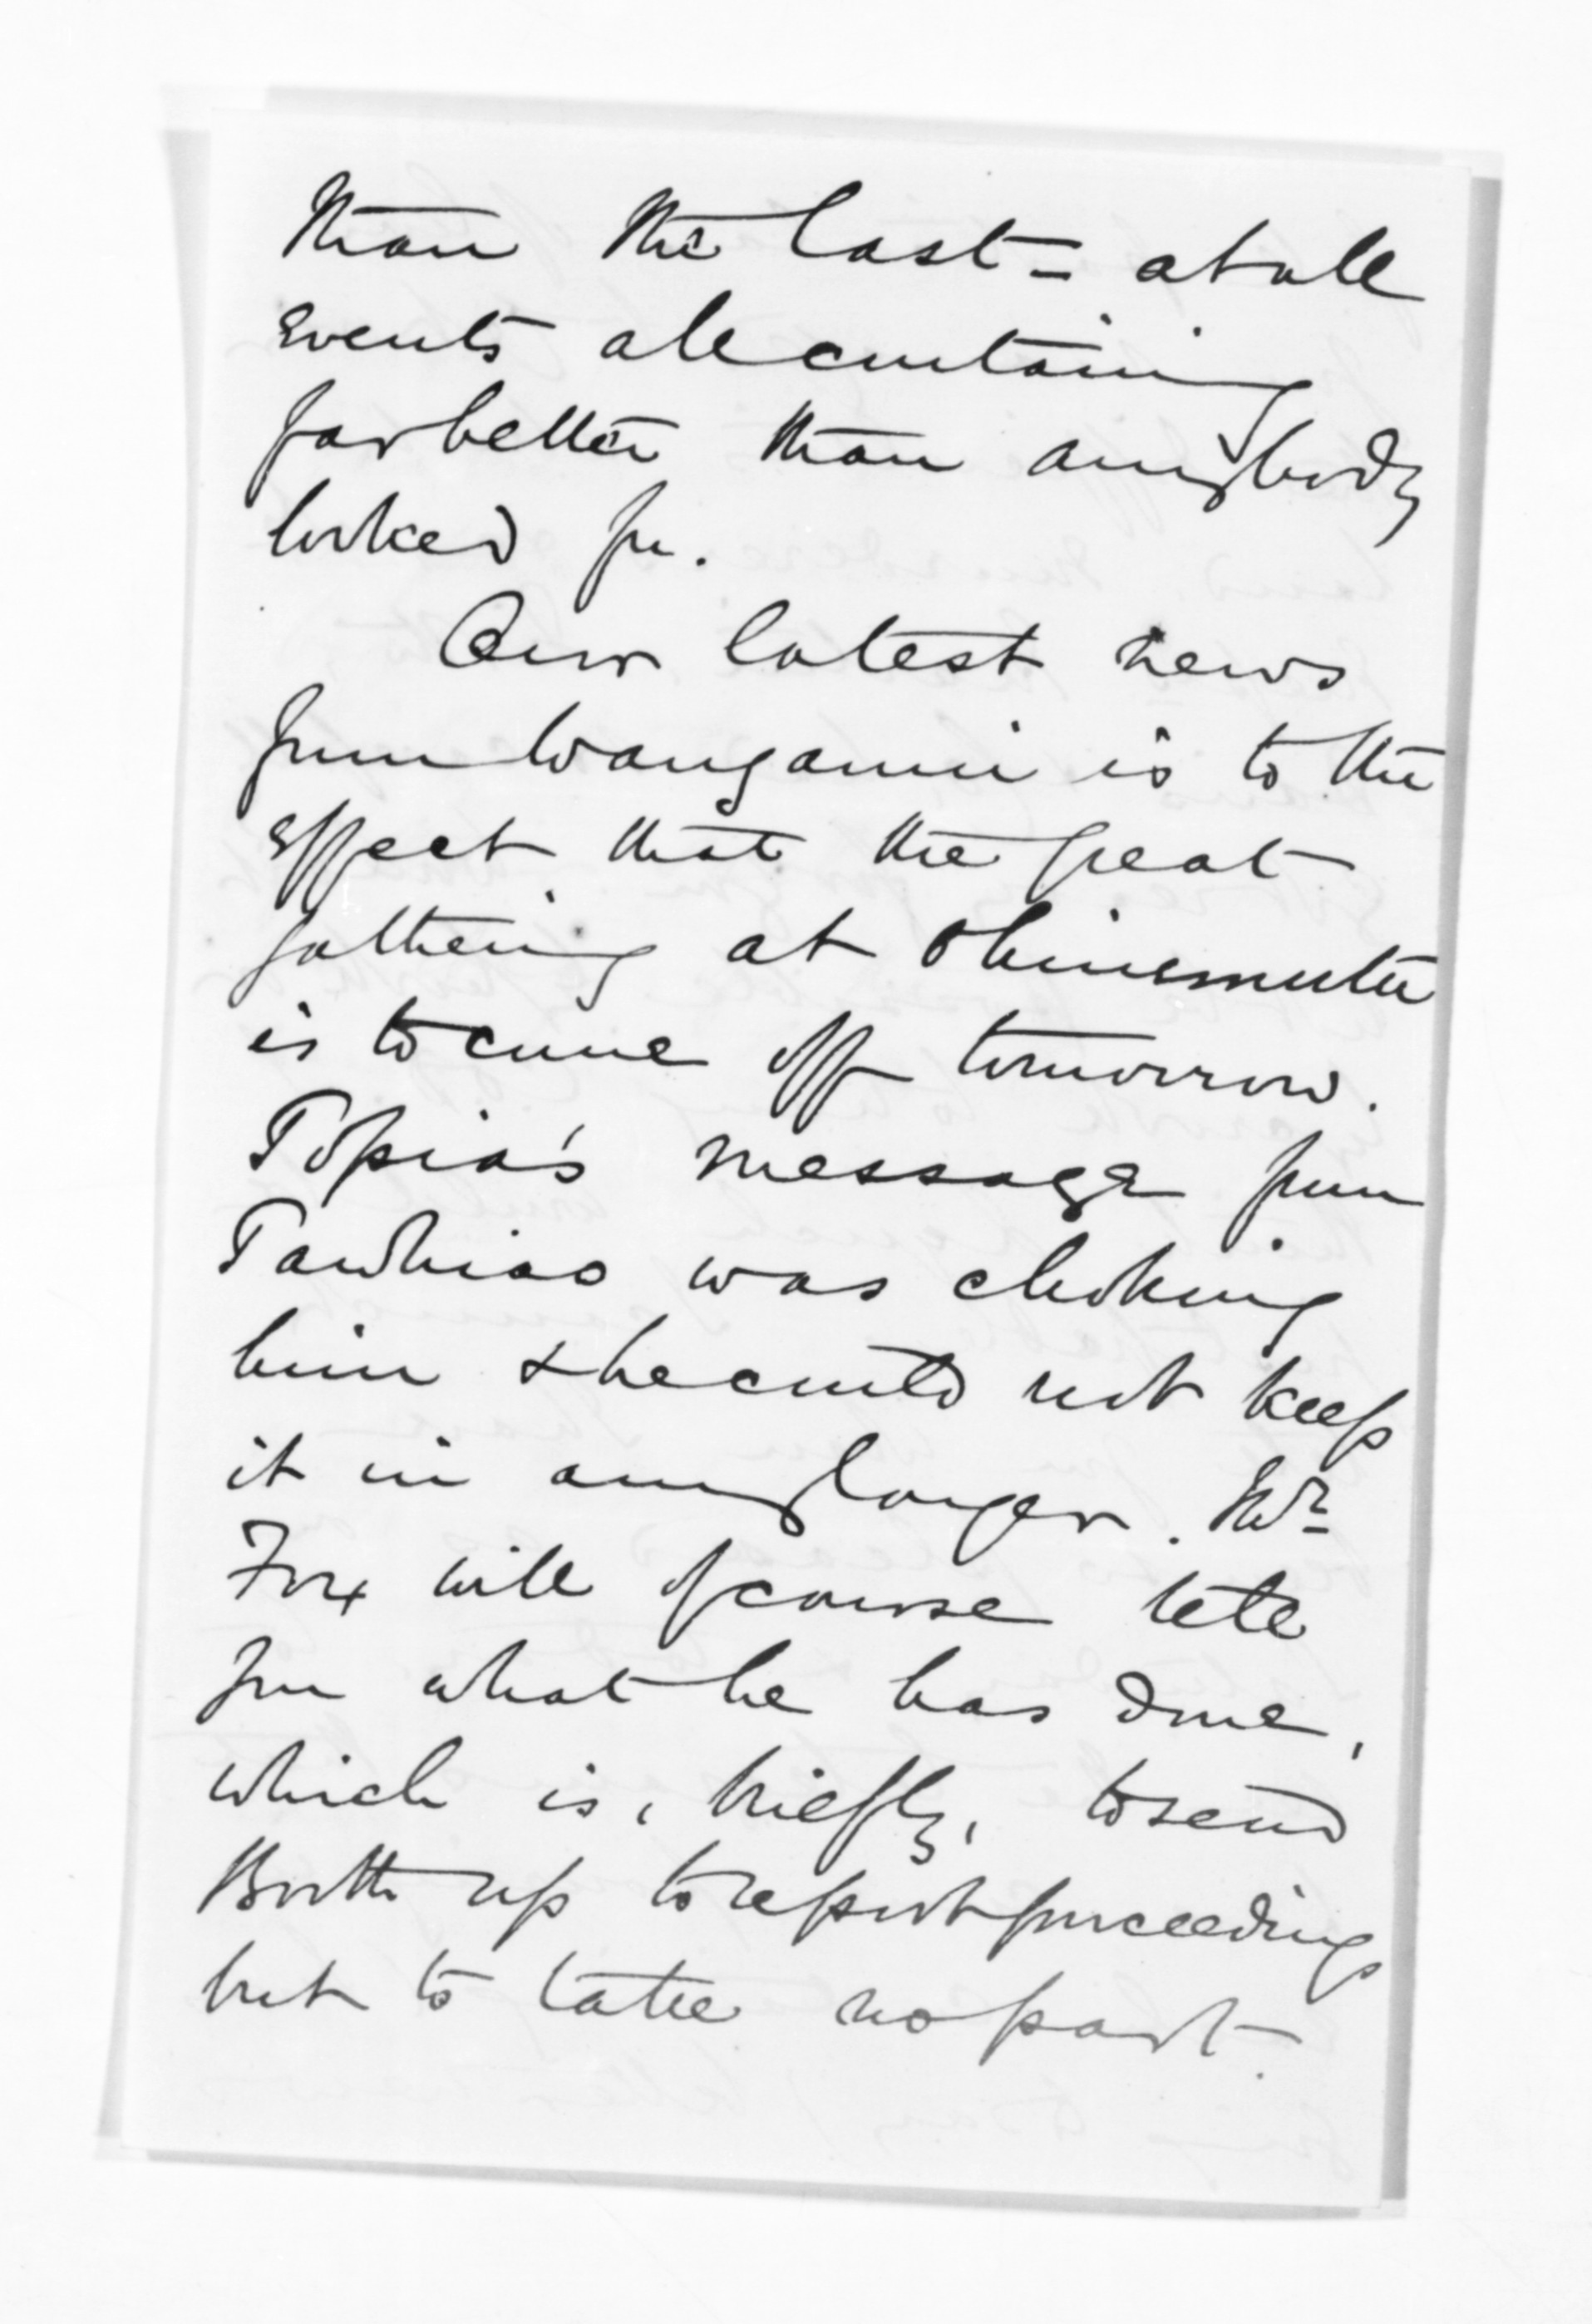 than the last = at all
events all containing
far better than anybody
looked for.
Our latest news
from Wanganui is to the
effect that the great
gathering at Ohinemutu
is to come off tomorrow.
Topia's message from
Tawhiao was choking
him & he could not keep
it in any longer. Mr
Fox will of course tell
you what he has done,
which is, briefly, to send
Booth up to report proceedings
but to take no part.